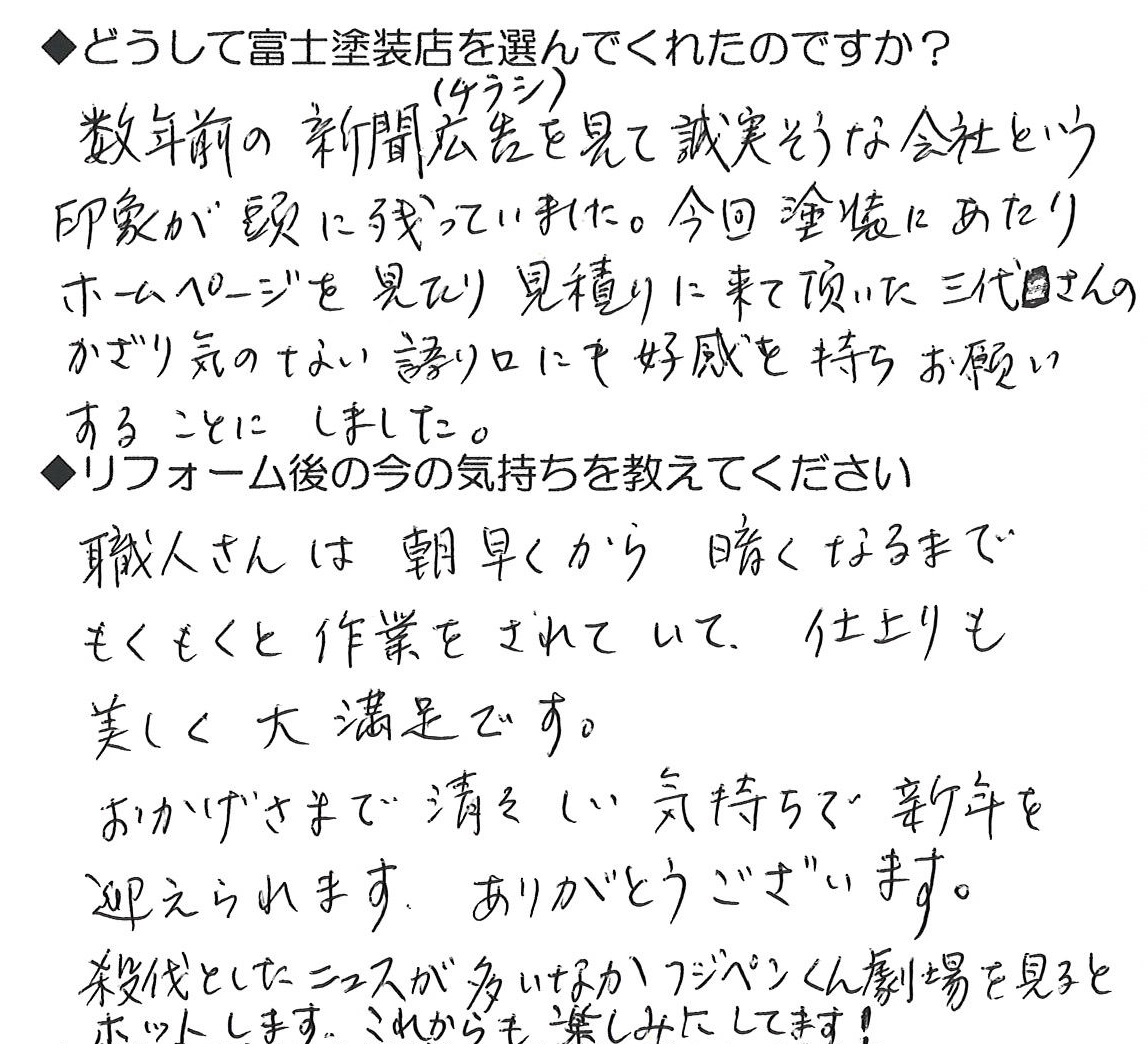 ◆どうして富士塗装店を選んでくれたのですか?
(チラシ)
数年前の新聞広告を見て誠実そうな会社という
印象が頭に残っていました。今回塗装にあたり
ホームページを見たり見積りに来て頂いた三代目さんの
かざり気のない語り口にも好感を持ちお願い
することにしました。
◆リフォーム後の今の気持ちを教えてください
職人さんは朝早くから暗くなるまで
もくもくと作業をされていて、仕上りも
美しく大満足です。
おかげさまで清々しい気持ちで新年を
迎えられます。ありがとうございます。
殺伐としたニュースが多いなかフジペンくん劇場を見ると
ホットします。これからも楽しみにしてます!